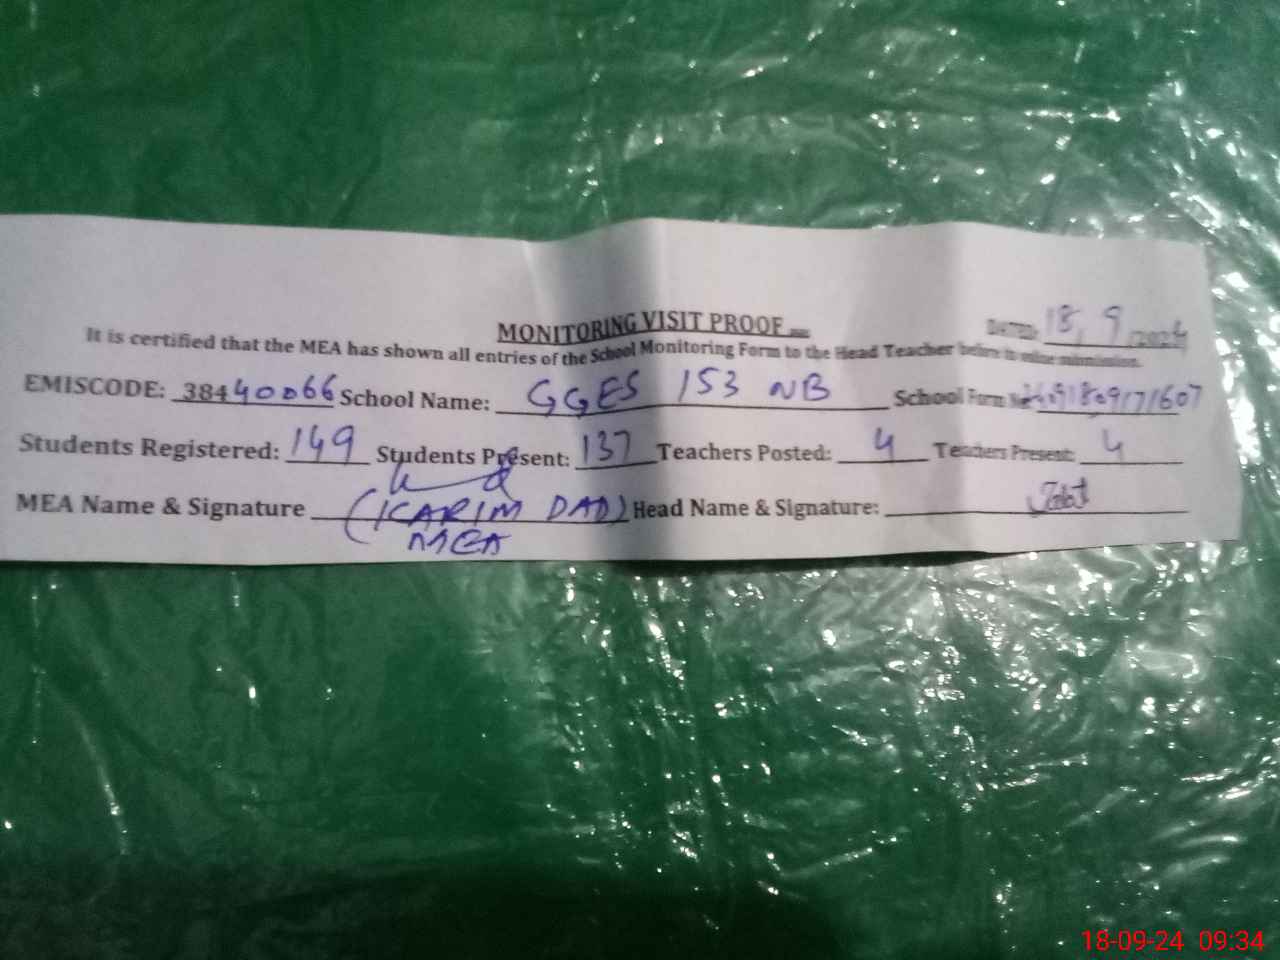 MONITORING VISIT PROOF
DATED: 18, 9, 2024
It is certified that the MEA has shown all entries of the School Monitoring Form to the Head Teacher before its online submission.
EMISCODE: 38440066 School Name: GGES 153 NB School Form No:
Students Registered: 149 Students Present: 137 Teachers Posted: 4 Teachers Present: 4
MEA Name & Signature (KARIM DAD) Head Name & Signature:
MEA
18-09-24 09:34